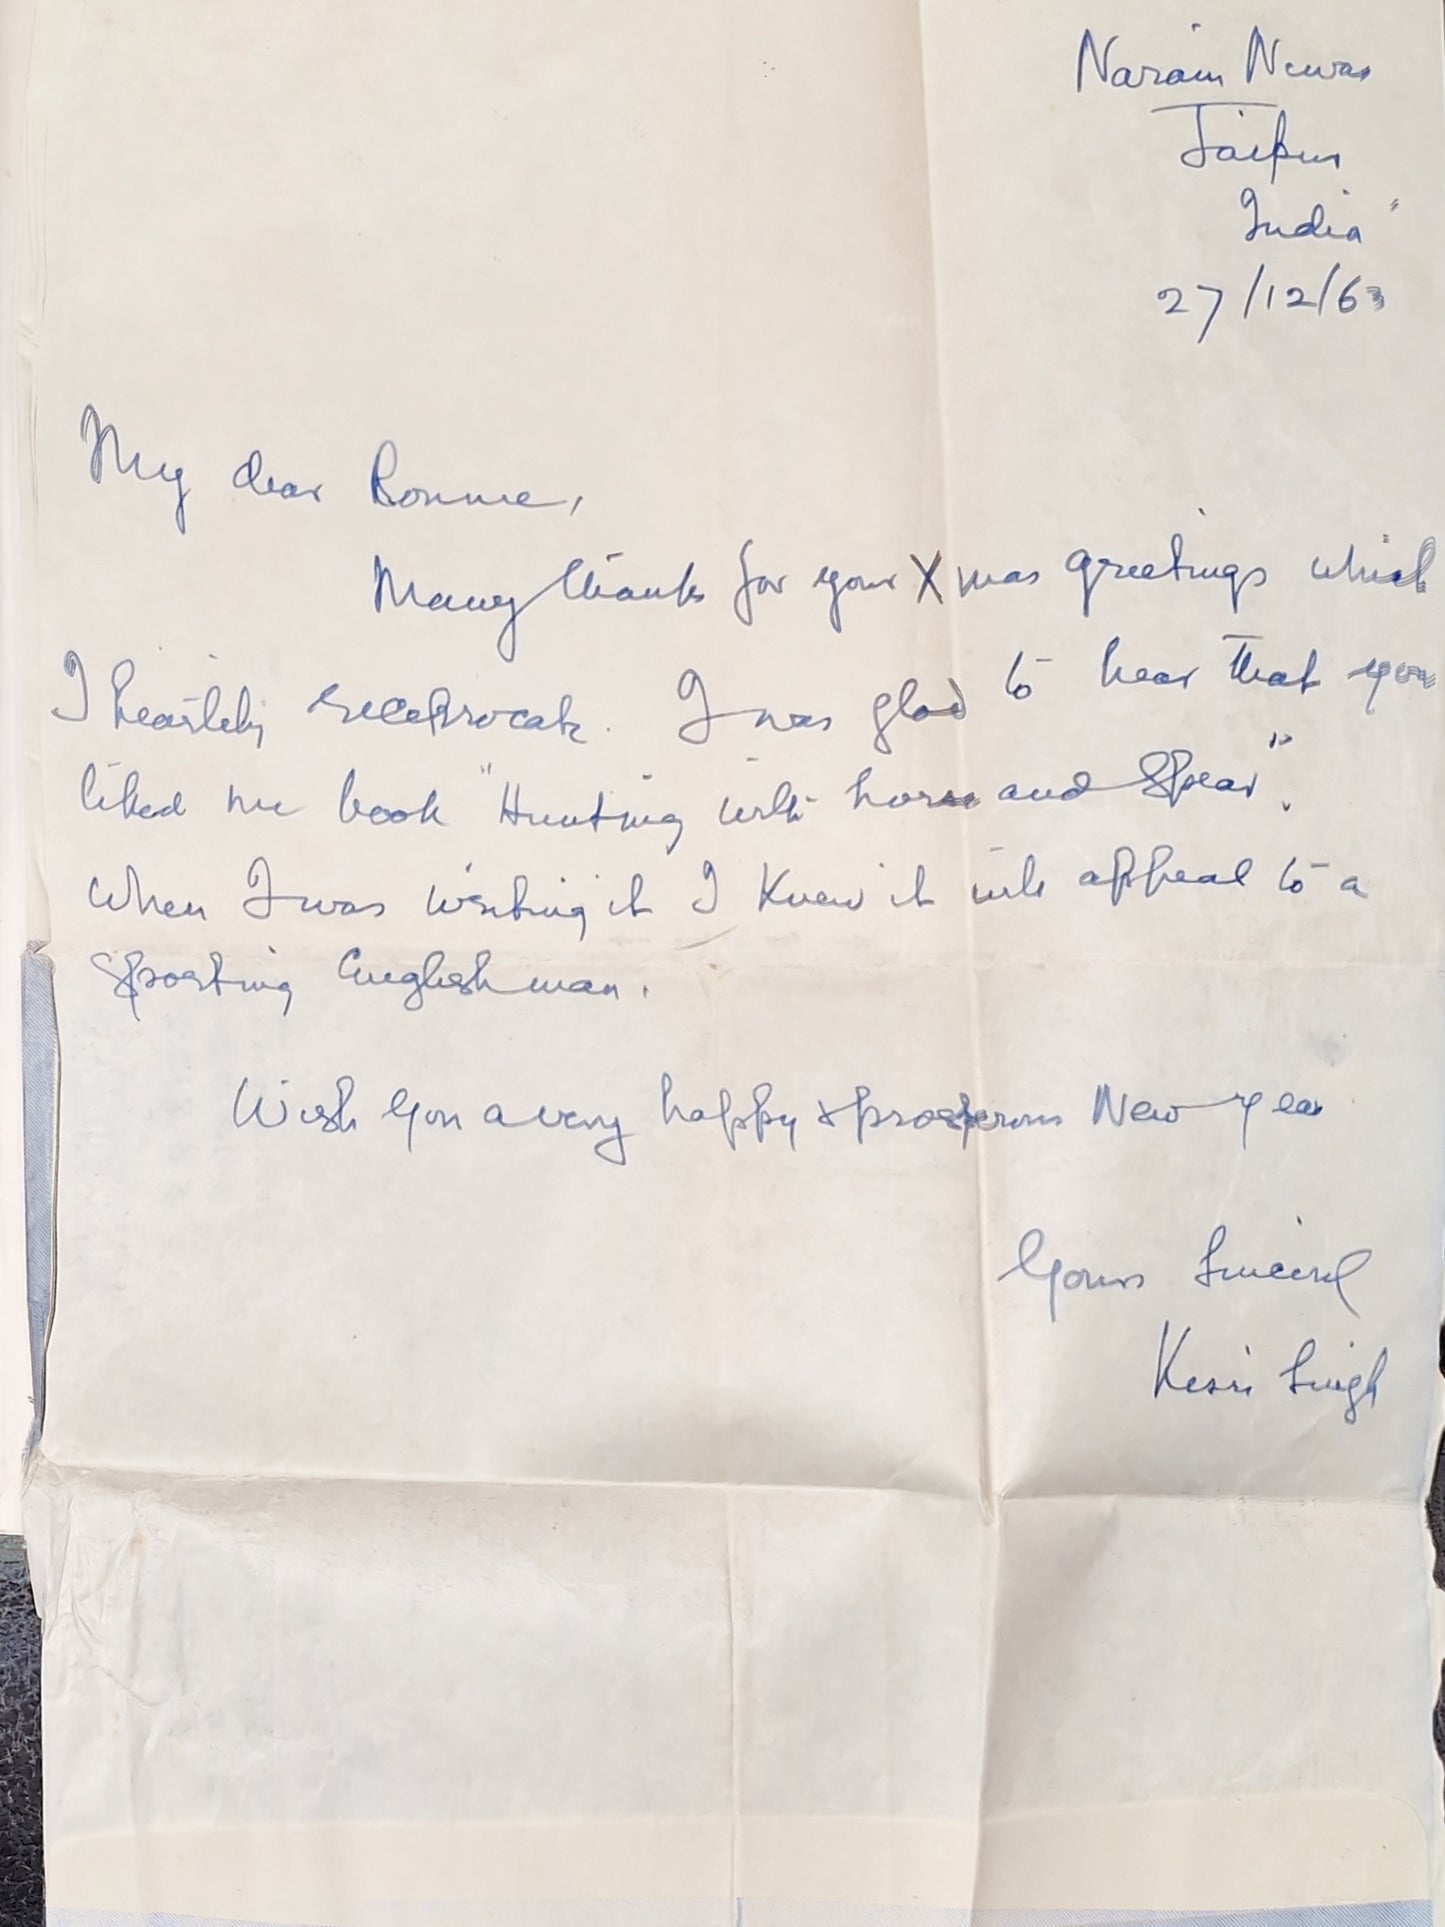 Narain Newas
Jaipur
India
27/12/63
My dear Bonnie,
Many thanks for your Xmas greetings which
I heartily reciprocate. I was glad to hear that you
liked my book "Hunting with horse and Spear".
When I was writing it I knew it will appeal to a
Sporting Englishman.
Wish you a very happy & prosperous New Year
Yours Sincerely
Kesri Singh